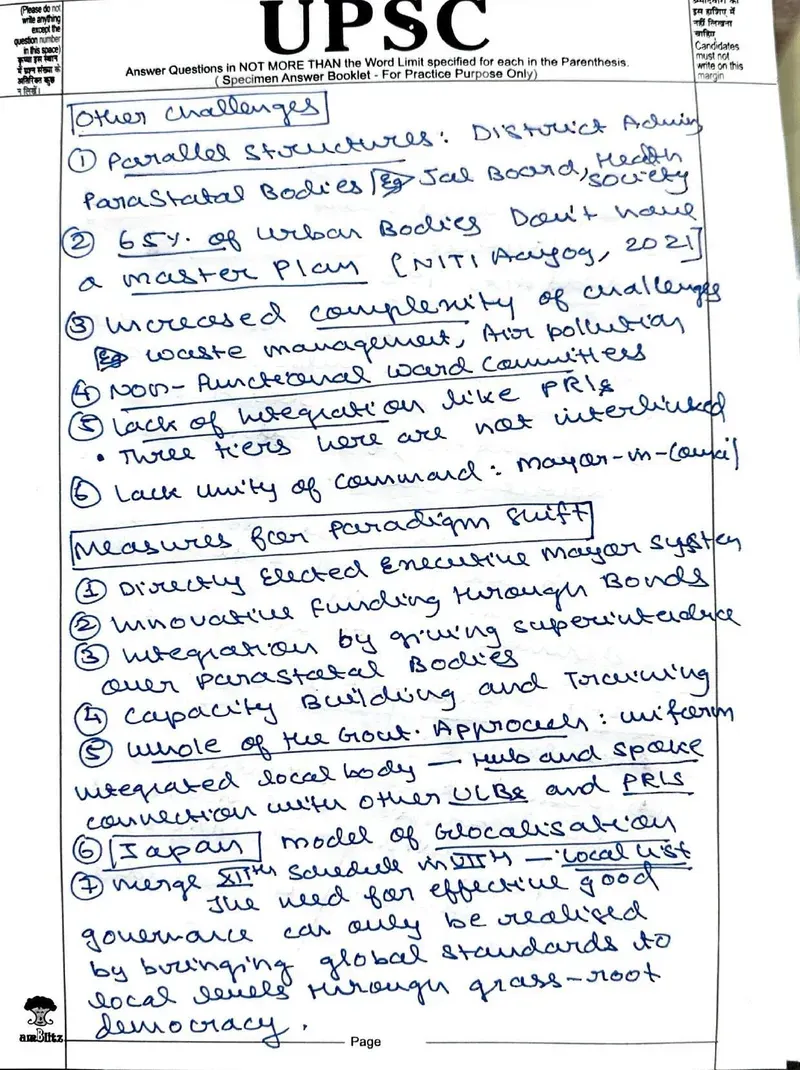 (Please do not
write anything
except the
question number
in this space)
कृपया इस स्थान
में प्रश्न संख्या के
अतिरिक्त कुछ
न लिखें।
UPSC
Answer Questions in NOT MORE THAN the Word Limit specified for each in the Parenthesis.
( Specimen Answer Booklet - For Practice Purpose Only)
इस हाशिए में
नहीं लिखना
चाहिए
Candidates
must not
write on this
margin
Other Challenges
① Parallel Structures: District Admin
ParaStatal Bodies Eg Jal Board, Health
Society
② 65% of Urban Bodies Don't have
a master Plan [NITI Aayog, 2021]
③ Increased complexity of challenges
Eg waste management, Air pollution
④ Non-functional ward committees
⑤ Lack of Integration like PRIs
• Three tiers here are not interlinked
⑥ Lack unity of command: Mayor-in-Council
Measures for Paradigm Shift
① Directly Elected Executive Mayor system
② Innovative funding through Bonds
③ Integration by giving superintendence
over Parastatal Bodies
④ Capacity Building and Training
⑤ Whole of the Govt. Approach: uniform
integrated local body — Hub and spoke
connection with other ULBs and PRIs
⑥ Japan model of Glocalisation
⑦ Merge XIIth Schedule in VIIth — Local list
The need for effective good
governance can only be realised
by bringing global standards to
local levels through grass-root
democracy.
amBlitz
Page